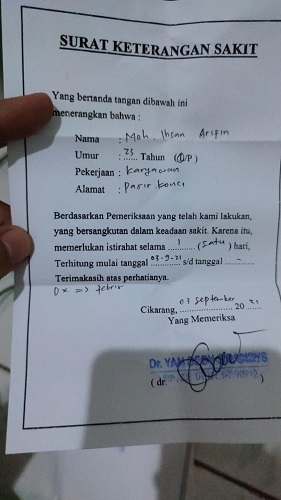 SURAT KETERANGAN SAKIT
Yang bertanda tangan dibawah ini
menerangkan bahwa :
Nama : Moh. Ihsan Arifin
Umur : 23 Tahun (L/P)
Pekerjaan : Karyawan
Alamat : Pasir Konci
Berdasarkan Pemeriksaan yang telah kami lakukan,
yang bersangkutan dalam keadaan sakit. Karena itu,
memerlukan istirahat selama 1 (satu) hari,
Terhitung mulai tanggal 03-9-21 s/d tanggal -
Terimakasih atas perhatianya.
Dx => febris
Cikarang, 03 September 20 21
Yang Memeriksa
Dr.
(dr. )